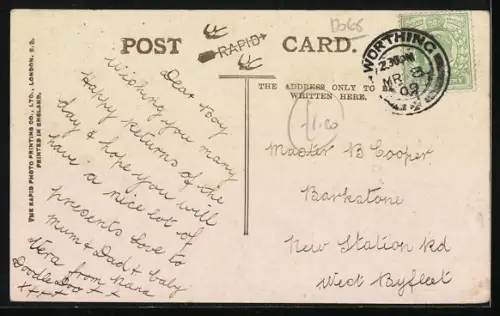 D368
POST RAPID CARD.
THE ADDRESS ONLY TO BE
WRITTEN HERE.
THE RAPID PHOTO PRINTING CO., LTD., LONDON, E.C.
PRINTED IN ENGLAND.
WORTHING
2.30 PM
MR 3
09
1.00
Dear Boy
Wishing you many
Happy Returns of the
day & hope you will
have a nice lot of
presents Love to
Mum & Dad & baby
Vera from Nana
Doodle Doo + +
x + + +
Master B Cooper
Barkstone
New Station Rd
West Byfleet